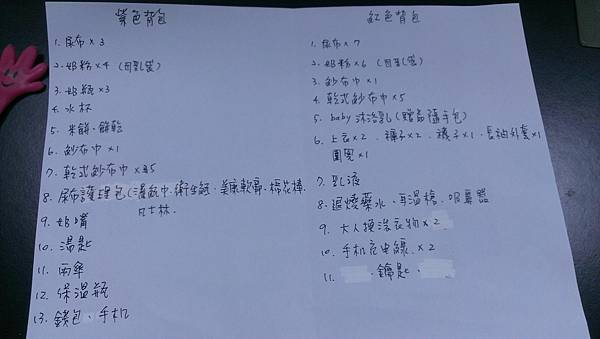 紫色背包
1. 尿布×3
2. 奶粉×4 (母乳袋)
3. 奶瓶×3
4. 水杯
5. 米餅、餅乾
6. 紗布巾×1
7. 乾式紗布巾×5
8. 尿布護理包(濕紙巾、衛生紙、美康軟膏、棉花棒、
凡士林.
9. 奶嘴
10. 湯匙
11. 雨傘
12. 保溫瓶
13. 錢包、手机
紅色背包
1. 尿布×7
2. 奶粉×6 (母乳袋)
3. 紗布巾×1
4. 乾式紗布巾×5
5. baby 沐浴乳(贈品隨手包)
6. 上衣×2、褲子×2、襪子×1、長袖外套×1
圍兜×1
7. 乳液
8. 退燒藥水、耳溫槍、吸鼻器
9. 大人換洗衣物×2
10. 手机充电線×2
11. 、鑰匙、